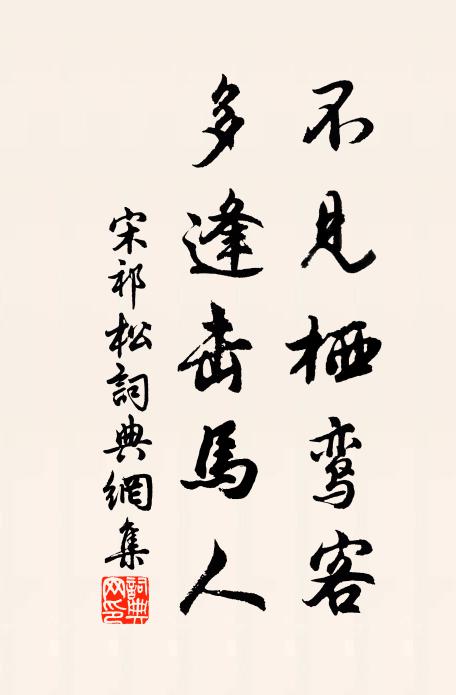 不見栖鸾客
多逢击馬人
宋祁松詞典網集
詞典网印